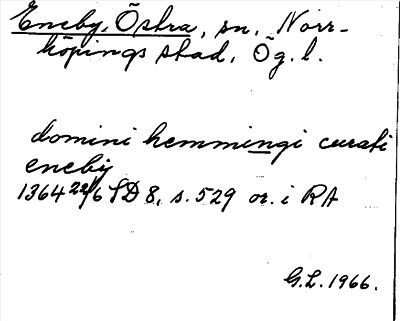 Eneby, Östra, sn, Norr-
köpings stad, Ög. l.
domini hemmingi curati
eneby
1364 22/6 SD 8, s. 529 or. i RA
G.L. 1966.